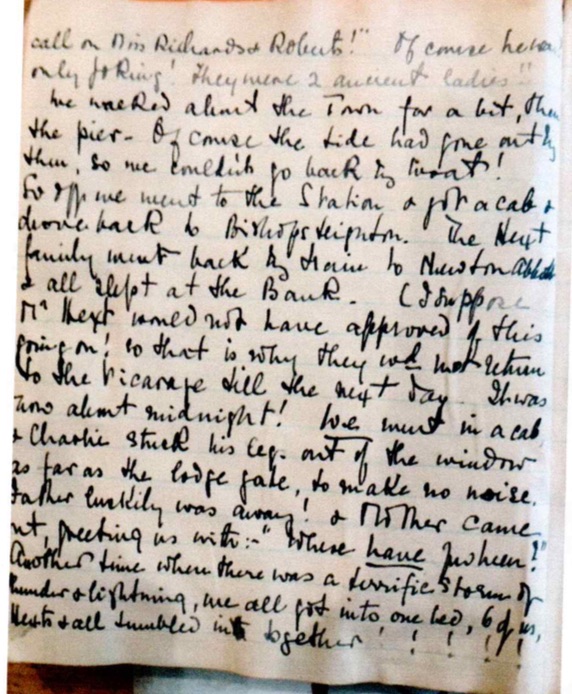 call on Miss Richards & Roberts!" Of course he was
only joking! They were 2 ancient ladies!!
We walked about the Town for a bit, then
the pier - Of course the tide had gone out by
then, so we couldn't go back by boat!
So off we went to the Station & got a cab &
drove back to Bishopsteignton. The Hext
family went back by train to Newton Abbot
& all slept at the Bank. (I suppose
Mr Hext would not have approved of this
going on! so that is why they wd not return
to the Vicarage till the next day. It was
now about midnight! We went in a cab
& Charlie stuck his legs out of the window
as far as the lodge gate, to make no noise.
Father luckily was away! & Mother came
out, greeting us with:- "Where have you been?"
Another time when there was a terrific storm of
thunder & lightning, we all got into one bed, 6 of us,
Hexts & all tumbled in together! ! ! ! !